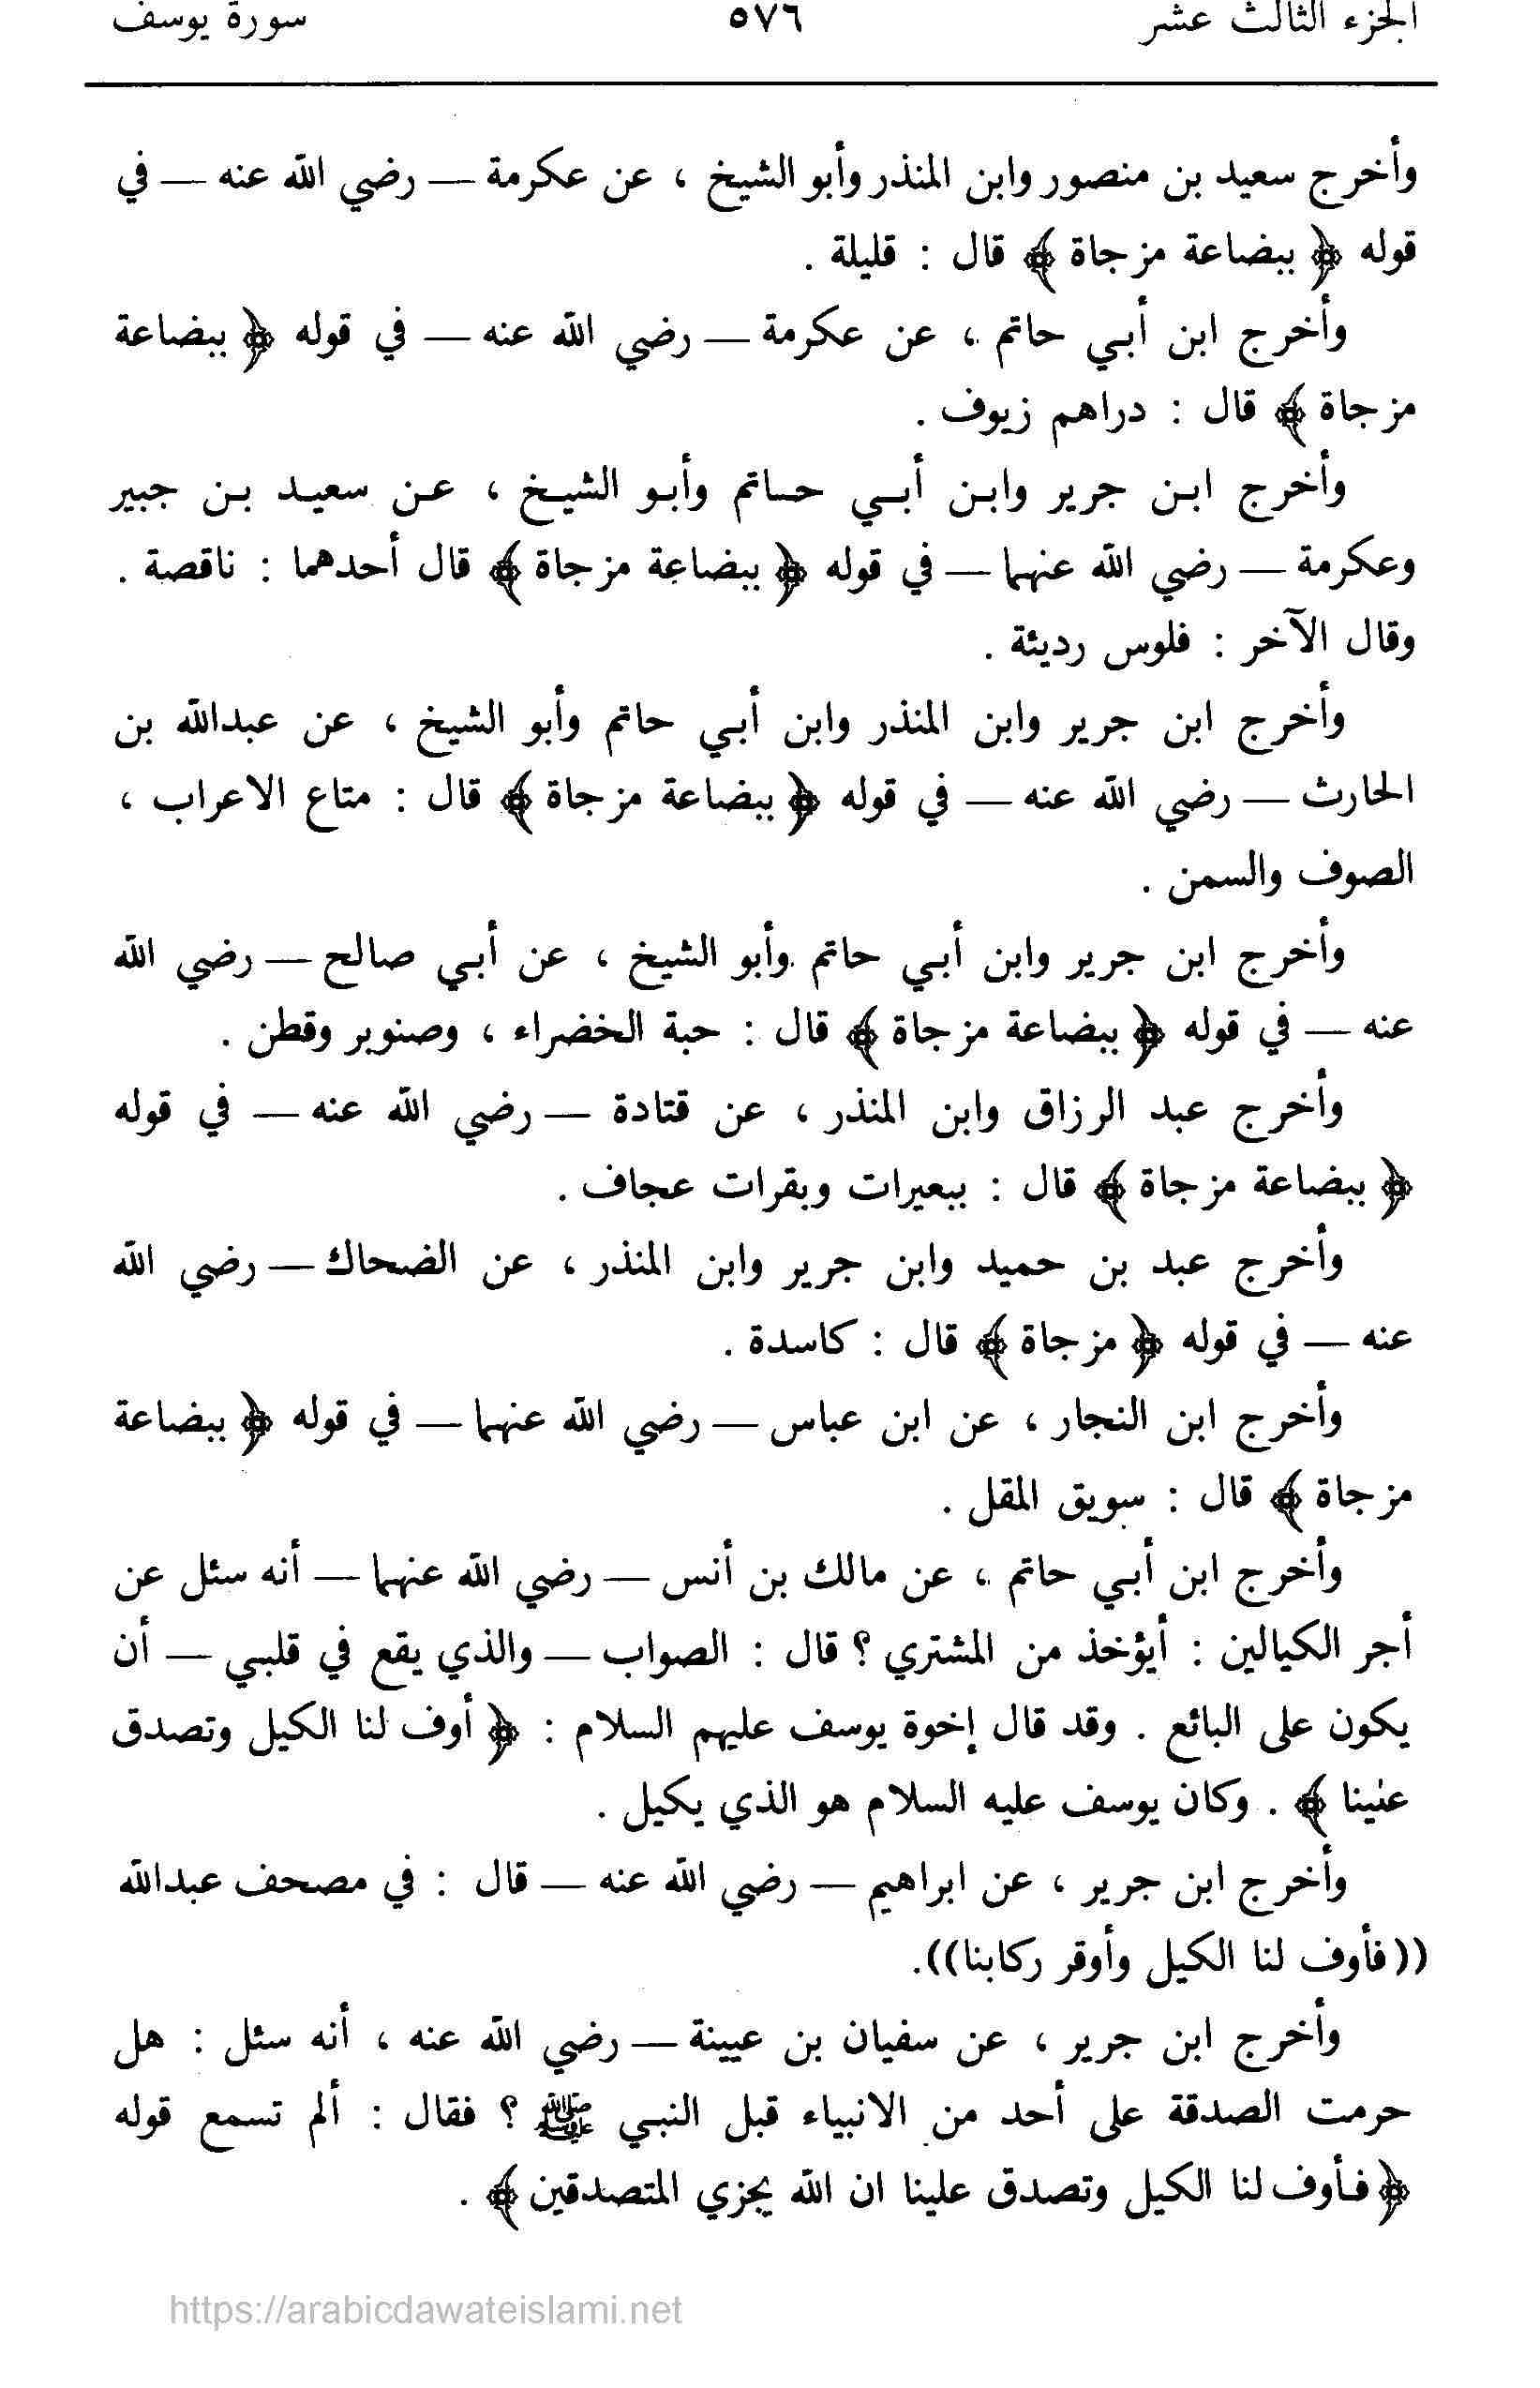 الجزء الثالث عشر ٥٧٦ سورة يوسف
وأخرج سعيد بن منصور وابن المنذر وأبو الشيخ ، عن عكرمة — رضي الله عنه — في
قوله ﴿ ببضاعة مزجاة ﴾ قال : قليلة .
وأخرج ابن أبي حاتم ، عن عكرمة — رضي الله عنه — في قوله ﴿ ببضاعة
مزجاة ﴾ قال : دراهم زيوف .
وأخرج ابن جرير وابن أبي حاتم وأبو الشيخ ، عن سعيد بن جبير
وعكرمة — رضي الله عنهما — في قوله ﴿ ببضاعة مزجاة ﴾ قال أحدهما : ناقصة .
وقال الآخر : فلوس رديئة .
وأخرج ابن جرير وابن المنذر وابن أبي حاتم وأبو الشيخ ، عن عبدالله بن
الحارث — رضي الله عنه — في قوله ﴿ ببضاعة مزجاة ﴾ قال : متاع الاعراب ،
الصوف والسمن .
وأخرج ابن جرير وابن أبي حاتم وأبو الشيخ ، عن أبي صالح — رضي الله
عنه — في قوله ﴿ ببضاعة مزجاة ﴾ قال : حبة الخضراء ، وصنوبر وقطن .
وأخرج عبد الرزاق وابن المنذر ، عن قتادة — رضي الله عنه — في قوله
﴿ ببضاعة مزجاة ﴾ قال : ببعيرات وبقرات عجاف .
وأخرج عبد بن حميد وابن جرير وابن المنذر ، عن الضحاك — رضي الله
عنه — في قوله ﴿ مزجاة ﴾ قال : كاسدة .
وأخرج ابن النجار ، عن ابن عباس — رضي الله عنهما — في قوله ﴿ ببضاعة
مزجاة ﴾ قال : سويق المقل .
وأخرج ابن أبي حاتم ، عن مالك بن أنس — رضي الله عنهما — أنه سئل عن
أجر الكيالين : أيؤخذ من المشتري ؟ قال : الصواب — والذي يقع في قلبي — أن
يكون على البائع . وقد قال إخوة يوسف عليهم السلام : ﴿ أوف لنا الكيل وتصدق
علينا ﴾ . وكان يوسف عليه السلام هو الذي يكيل .
وأخرج ابن جرير ، عن ابراهيم — رضي الله عنه — قال : في مصحف عبدالله
((فأوف لنا الكيل وأوقر ركابنا)).
وأخرج ابن جرير ، عن سفيان بن عيينة — رضي الله عنه ، أنه سئل : هل
حرمت الصدقة على أحد من الانبياء قبل النبي ﷺ ؟ فقال : ألم تسمع قوله
﴿ فأوف لنا الكيل وتصدق علينا ان الله يجزي المتصدقين ﴾ .
https://arabicdawateislami.net